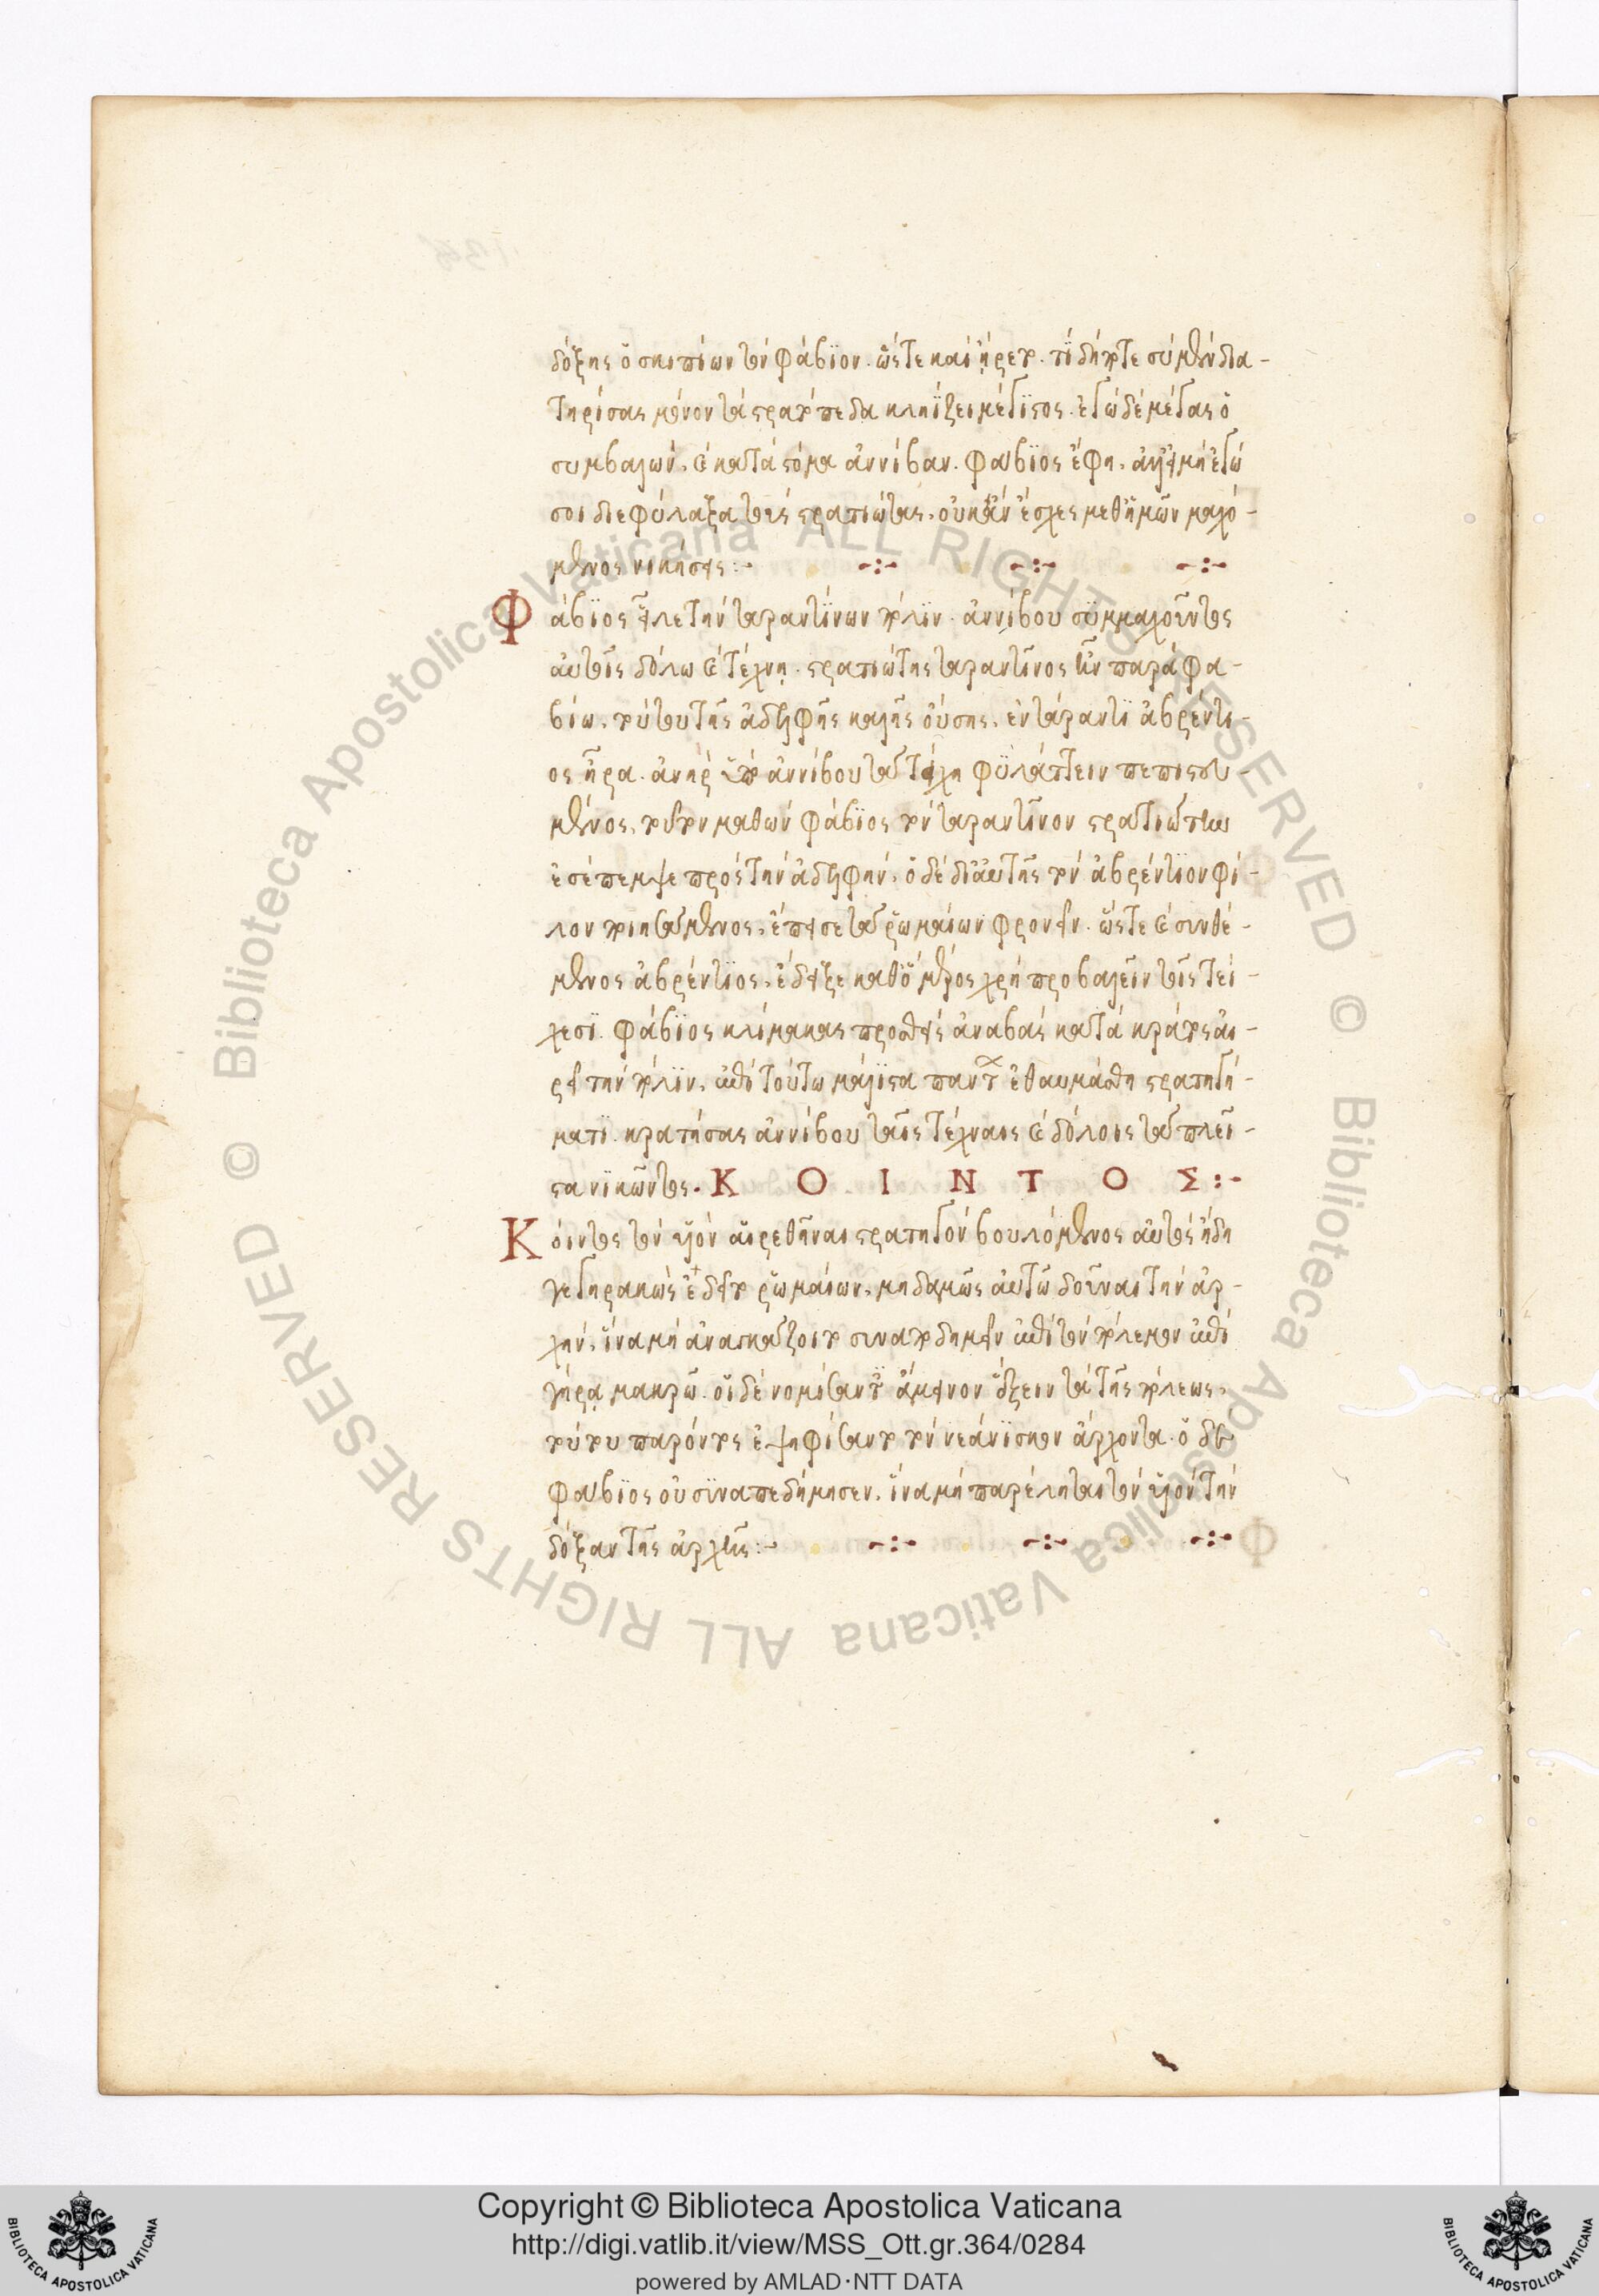 δόξης ὁ σκιπίων τὸν φάβϊον. ὥστε καὶ ἤρετο. τί δήποτε σὺ μὲν δια-
τηρήσας μόνον τὰ στρατόπεδα κληΐζει μέγϊστος. ἐγὼ δὲ μέγας ὁ
συμβαλὼν, καὶ κατὰ στόμα ἀννίβαν. φάβϊος ἔφη, ἀλλ' εἰ μὴ ἐγὼ
σοι διεφύλαξα τοὺς στρατιώτας, οὐκ ἂν ἔσχες μεθ' ἡμῶν μαχό-
μενος νικήσεις :-
Φάβϊος εἷλε τὴν ταραντίνων πόλϊν. ἀννίβου συμμαχοῦντος
αὐτοῖς δόλω καὶ τέχνῃ. στρατιώτης ταραντῖνος ἦν παρὰ φα-
βίω, τούτου τῆς ἀδελφῆς καλῆς οὔσης, ἐν τάραντϊ ἀβρέντι-
ος ἤρα. ἀνὴρ ὑπὸ ἀννίβου τὰ τείχη φϋλάττειν πεπιστευ-
μένος, τοῦτον μαθὼν φάβϊος τὸν ταραντῖνον στρατιώτην
ἐσέπεμψε πρὸς τὴν ἀδελφήν. ὁ δὲ δι' αὐτῆς τὸν ἀβρέντϊον φί-
λον ποιησάμενος, ἔπεισε τὰ ῥωμαίων φρονεῖν. ὥστε καὶ συνθέ-
μενος ἀβρέντϊος, ἔδειξε καθ' ὃ μέρος χρὴ προβαλεῖν τοῖς τεί-
χεσϊ. φάβϊος κλίμακας προσθεὶς ἀναβὰς κατὰ κράτος αἱ-
ρεῖ τὴν πόλϊν, ἐπὶ τούτω μάλϊστα πάντες ἐθαυμάσθη στρατηγή-
ματι. κρατήσας ἀννίβου ταῖς τέχναις καὶ δόλοις τὰ πλεῖ-
στα νϊκῶντος. Κ Ο Ι Ν Τ Ο Σ :-
Κόιντος τὸν υἱὸν αἱρεθῆναι στρατηγὸν βουλόμενος αὐτὸς ἤδη
γεγηρακὼς ἐδεῖτο ῥωμαίων, μηδαμῶς αὐτῶ δοῦναι τὴν ἀρ-
χήν, ἵνα μὴ ἀναγκάζοιτο συναποδημεῖν ἐπὶ τὸν πόλεμον ἐπὶ
γήρᾳ μακρῶ. οἱ δὲ νομίσαντες ἄμεινον ἕξειν τὰ τῆς πόλεως,
τούτου παρόντος ἐψηφίσαντο τὸν νεάνϊσκον ἄρχοντα. ὁ δὲ
φάβϊος οὐ συναπεδήμησεν, ἵνα μὴ παρέληται τὸν υἱὸν τὴν
δόξαν τῆς ἀρχῆς :-
Copyright © Biblioteca Apostolica Vaticana
http://digi.vatlib.it/view/MSS_Ott.gr.364/0284
powered by AMLAD·NTT DATA
BIBLIOTECA APOSTOLICA VATICANA
BIBLIOTECA APOSTOLICA VATICANA
© Biblioteca Apostolica Vaticana ALL RIGHTS RESERVED
© Biblioteca Apostolica Vaticana ALL RIGHTS RESERVED